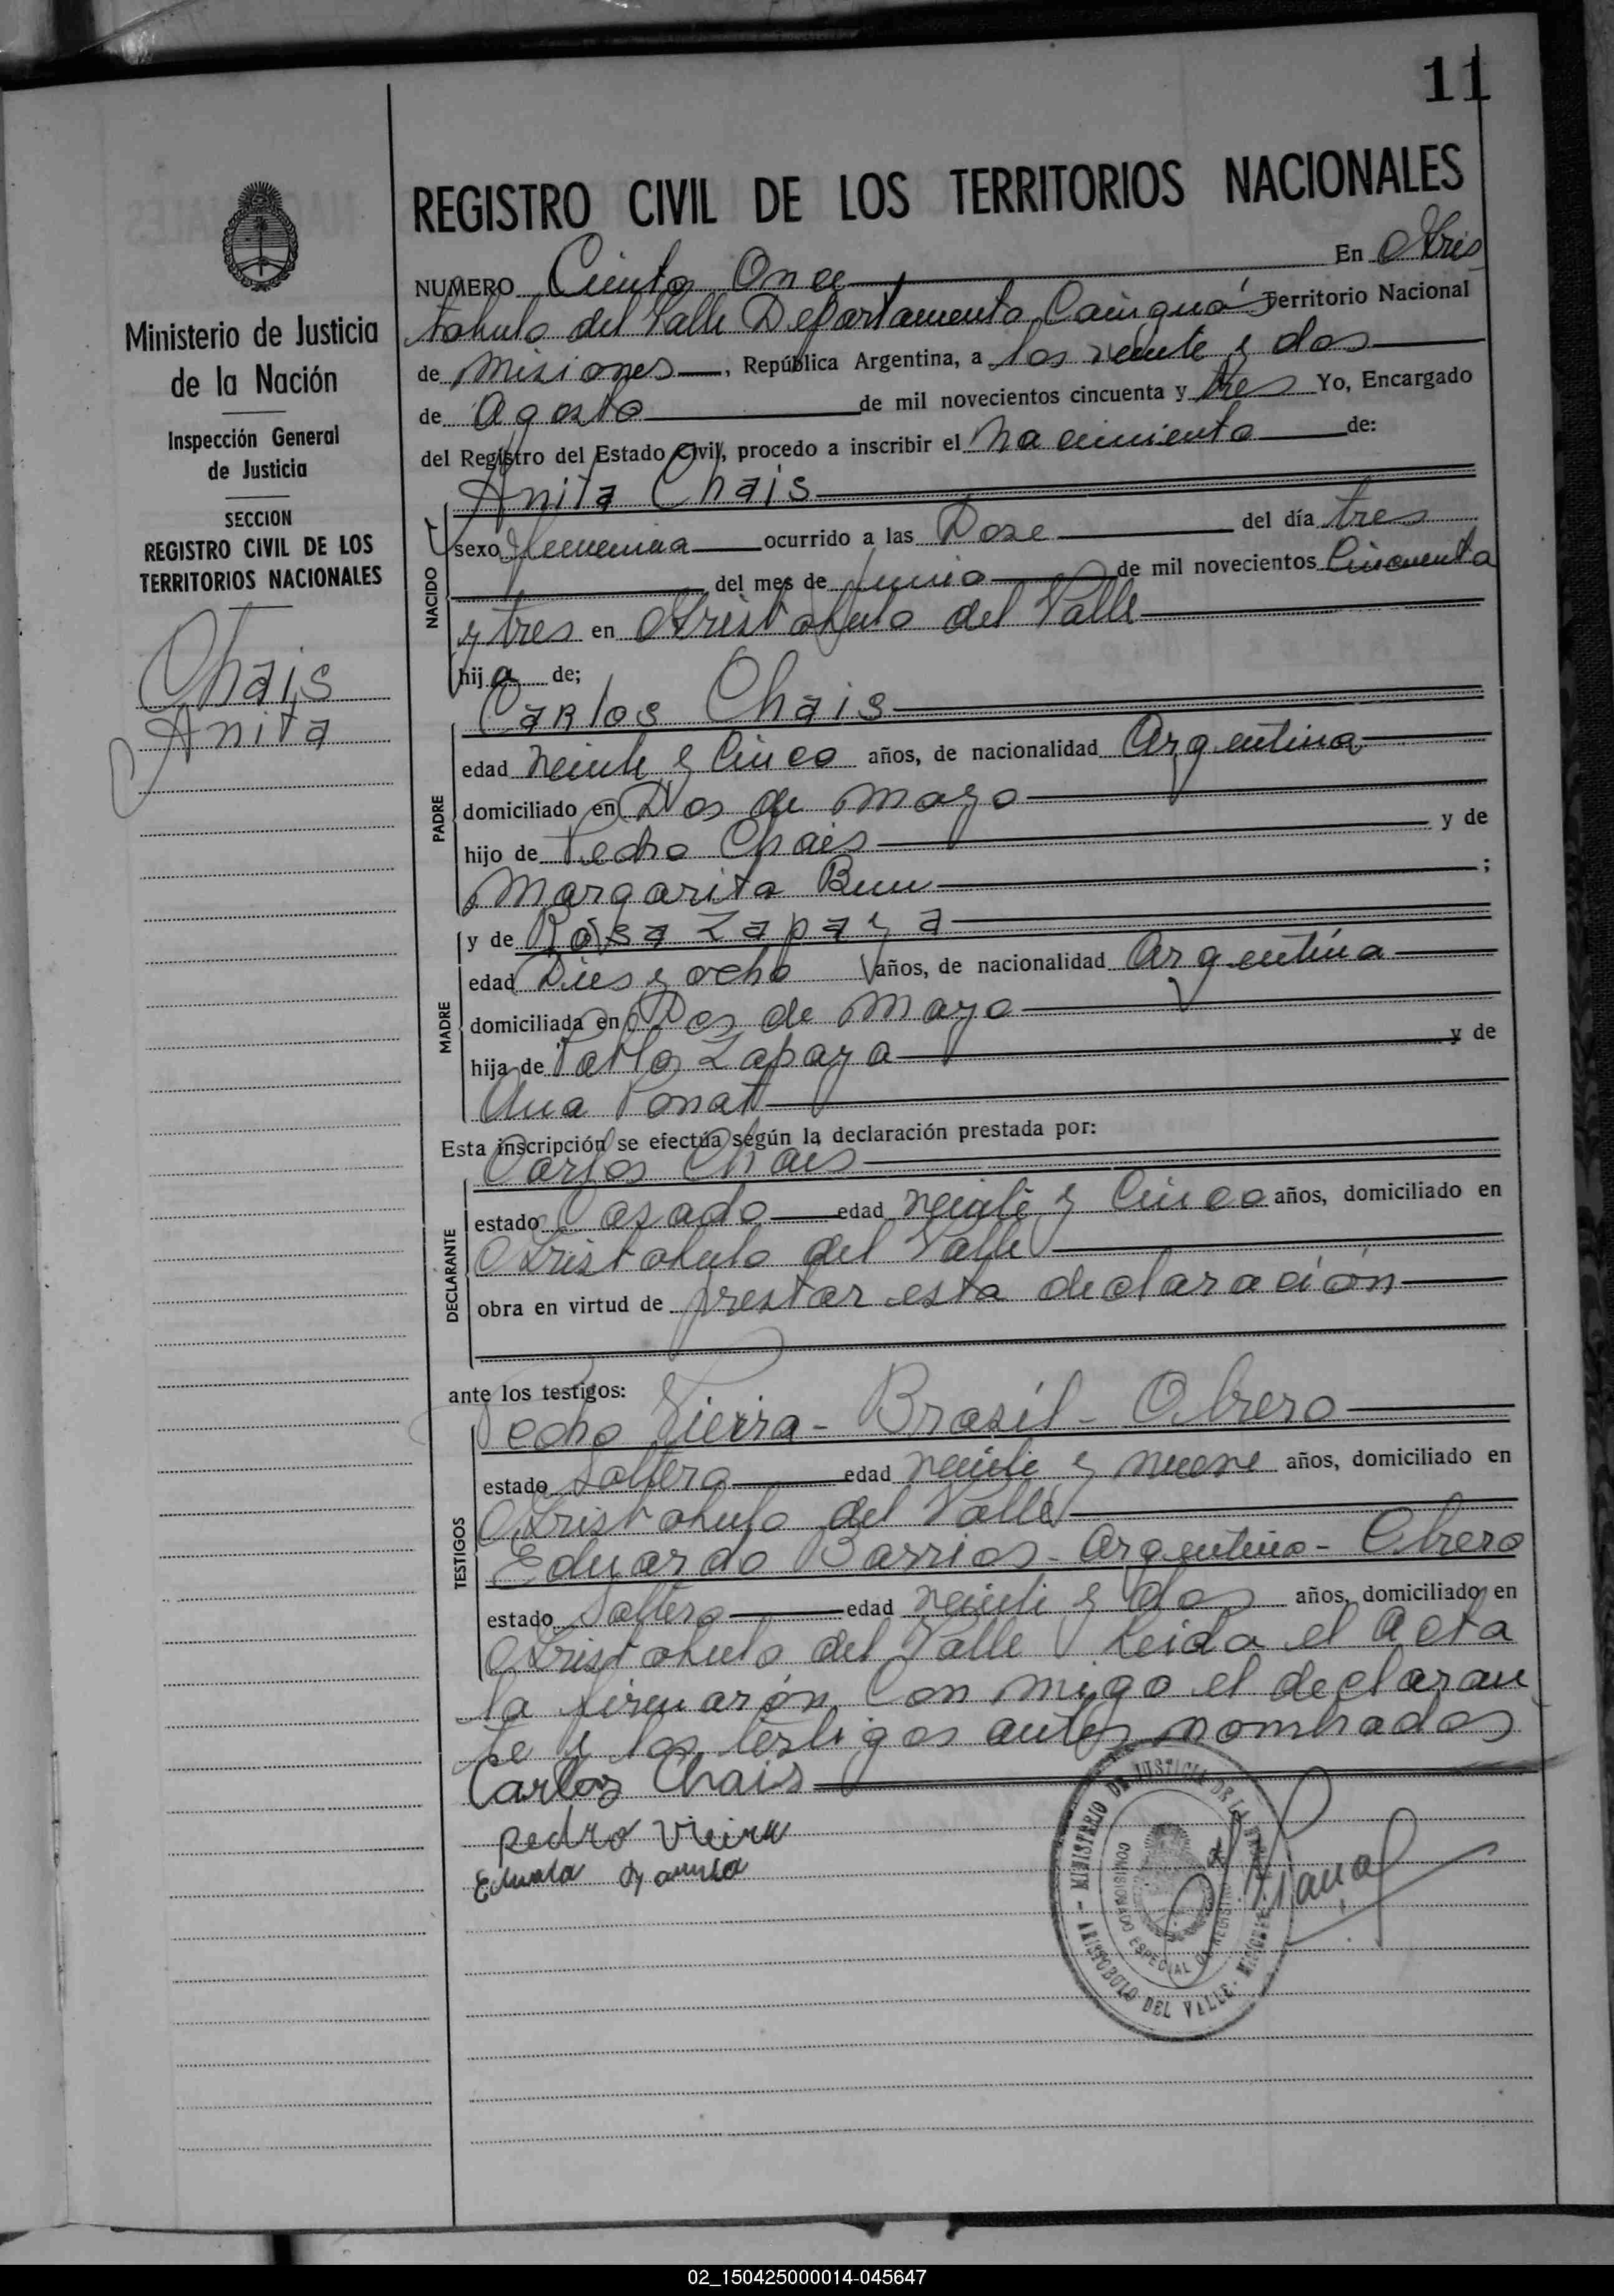 11
REGISTRO CIVIL DE LOS TERRITORIOS NACIONALES
Ministerio de Justicia
de la Nación
Inspección General
de Justicia
SECCION
REGISTRO CIVIL DE LOS
TERRITORIOS NACIONALES
Chais
Anita
NUMERO Ciento Once En Aris
tobulo del Valle Departamento Cainguá Territorio Nacional
de Misiones, República Argentina, a los veinte y dos
de Agosto de mil novecientos cincuenta y tres Yo, Encargado
del Registro del Estado Civil, procedo a inscribir el nacimiento de:
NACIDO
Anita Chais
sexo femenina ocurrido a las Dose del día tres
del mes de Junio de mil novecientos Cincuenta
y tres en Aristobulo del Valle
hija de;
PADRE
Carlos Chais
edad veinte y Cinco años, de nacionalidad Argentina
domiciliado en Dos de Mayo
hijo de Pedro Chais y de
Margarita ;
MADRE
y de Rosa Zapaya
edad Dies y ocho años, de nacionalidad Argentina
domiciliada en Dos de Mayo
hija de Pablo Zapaya y de
Ana Ponat
Esta inscripción se efectúa según la declaración prestada por:
DECLARANTE
Carlos Chais
estado Casado edad veinte y Cinco años, domiciliado en
Aristobulo del Valle
obra en virtud de prestar esta declaración
ante los testigos:
TESTIGOS
Pedro Vieira - Brasil - Obrero
estado Soltero edad veinte y nueve años, domiciliado en
Aristobulo del Valle
Eduardo Barrios - Argentino - Obrero
estado Soltero edad veinte y dos años, domiciliado en
Aristobulo del Valle Leida el Acta
la firmarón Con migo el declaran
te y los testigos antes nombrados
Carlos Chais
Pedro Vieira
MINISTERIO DE JUSTICIA DE LA
COMISIONADO ESPECIAL DE REGISTRO
ARISTOBULO DEL VALLE - MISIONES
02_150425000014-045647